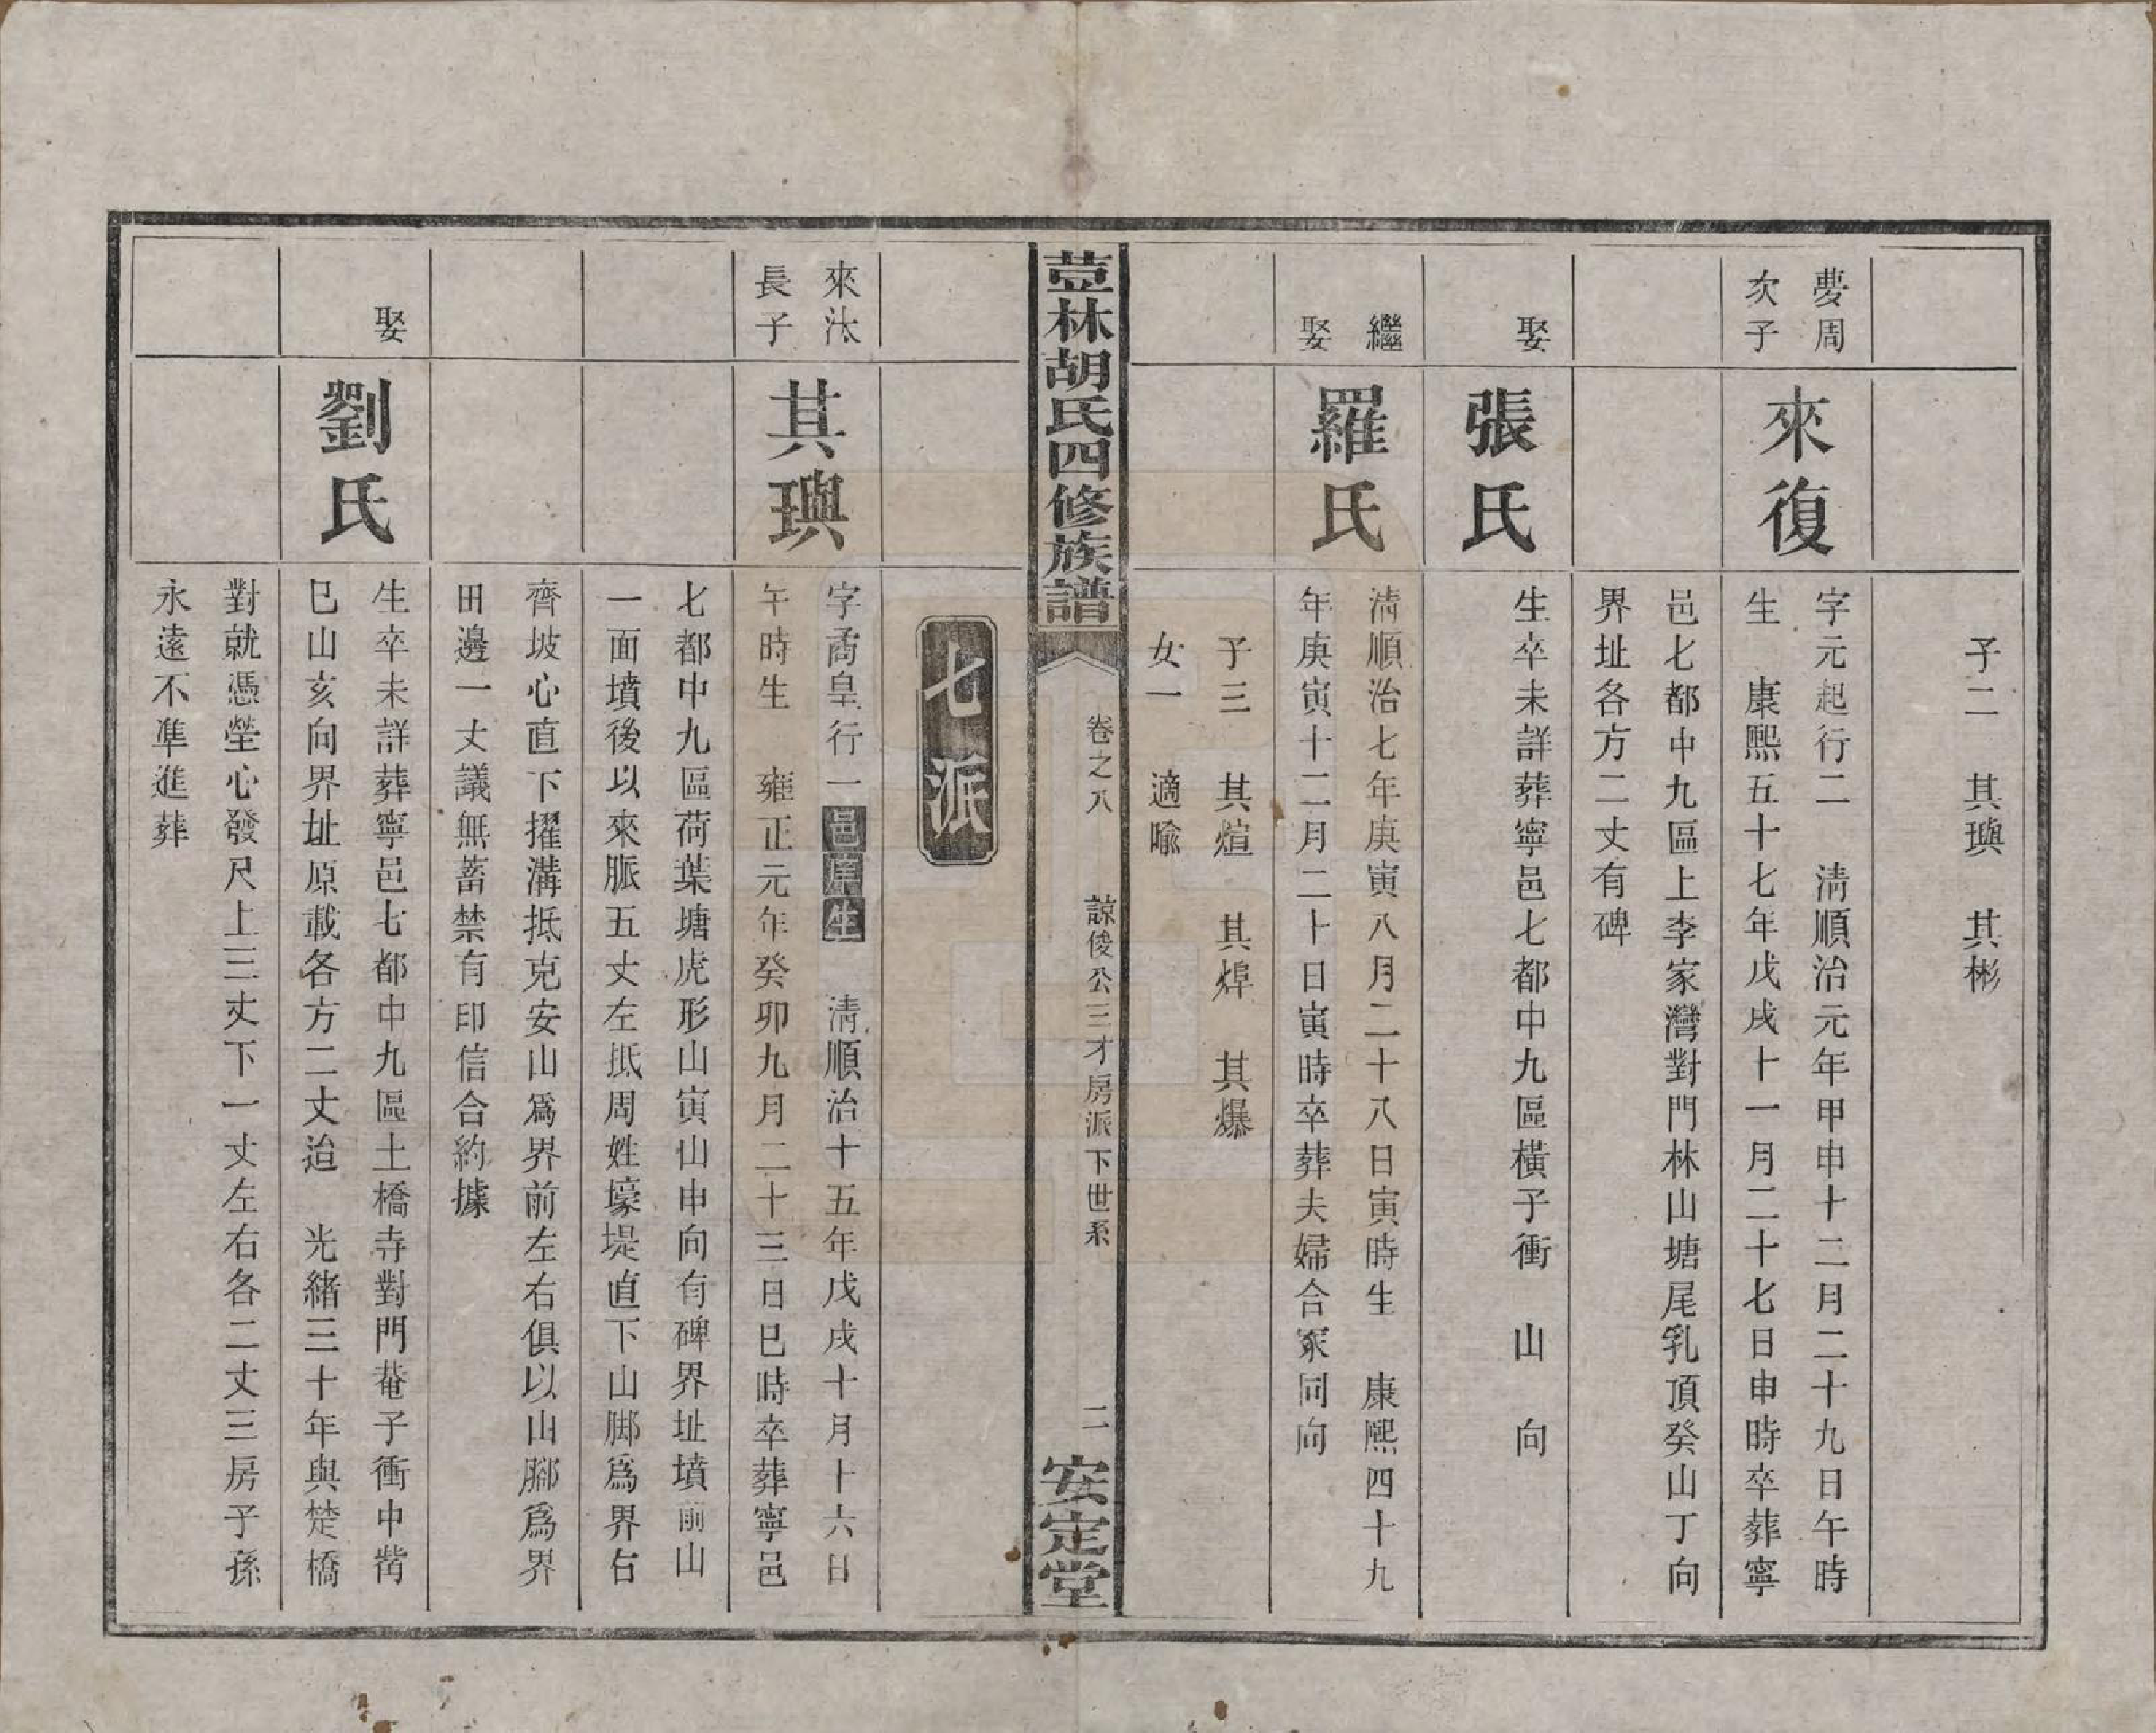 子二　其璵　其彬
夢周
次子
來復
字元起行二　清順治元年甲申十二月二十九日午時
生　康熙五十七年戊戌十一月二十七日申時卒葬寧
邑七都中九區上李家灣對門林山塘尾乳頂癸山丁向
界址各方二丈有碑
娶
張氏
生卒未詳葬寧邑七都中九區橫子衝　山　向
繼
娶
羅氏
清順治七年庚寅八月二十八日寅時生　康熙四十九
年庚寅十二月二十日寅時卒葬夫婦合冢同向
子三　其煊　其焊　其爆
女一　適喻
荳林胡氏四修族譜
卷之八　諒俊公三才房派下世系　二
安定堂
七派
來汰
長子
其璵
字矞皇行一邑庠生　清順治十五年戊戌十月十六日
午時生　雍正元年癸卯九月二十三日巳時卒葬寧邑
七都中九區荷葉塘虎形山寅山申向有碑界址墳前山
一面墳後以來脈五丈左抵周姓壕堤直下山脚爲界右
齊坡心直下擢溝抵克安山爲界前左右俱以山腳爲界
田邊一丈議無蓄禁有印信合約據
娶
劉氏
生卒未詳葬寧邑七都中九區土橋寺對門菴子衝中嘴
巳山亥向界址原載各方二丈迨　光緒三十年與楚橋
對就憑塋心發尺上三丈下一丈左右各二丈三房子孫
永遠不準進葬